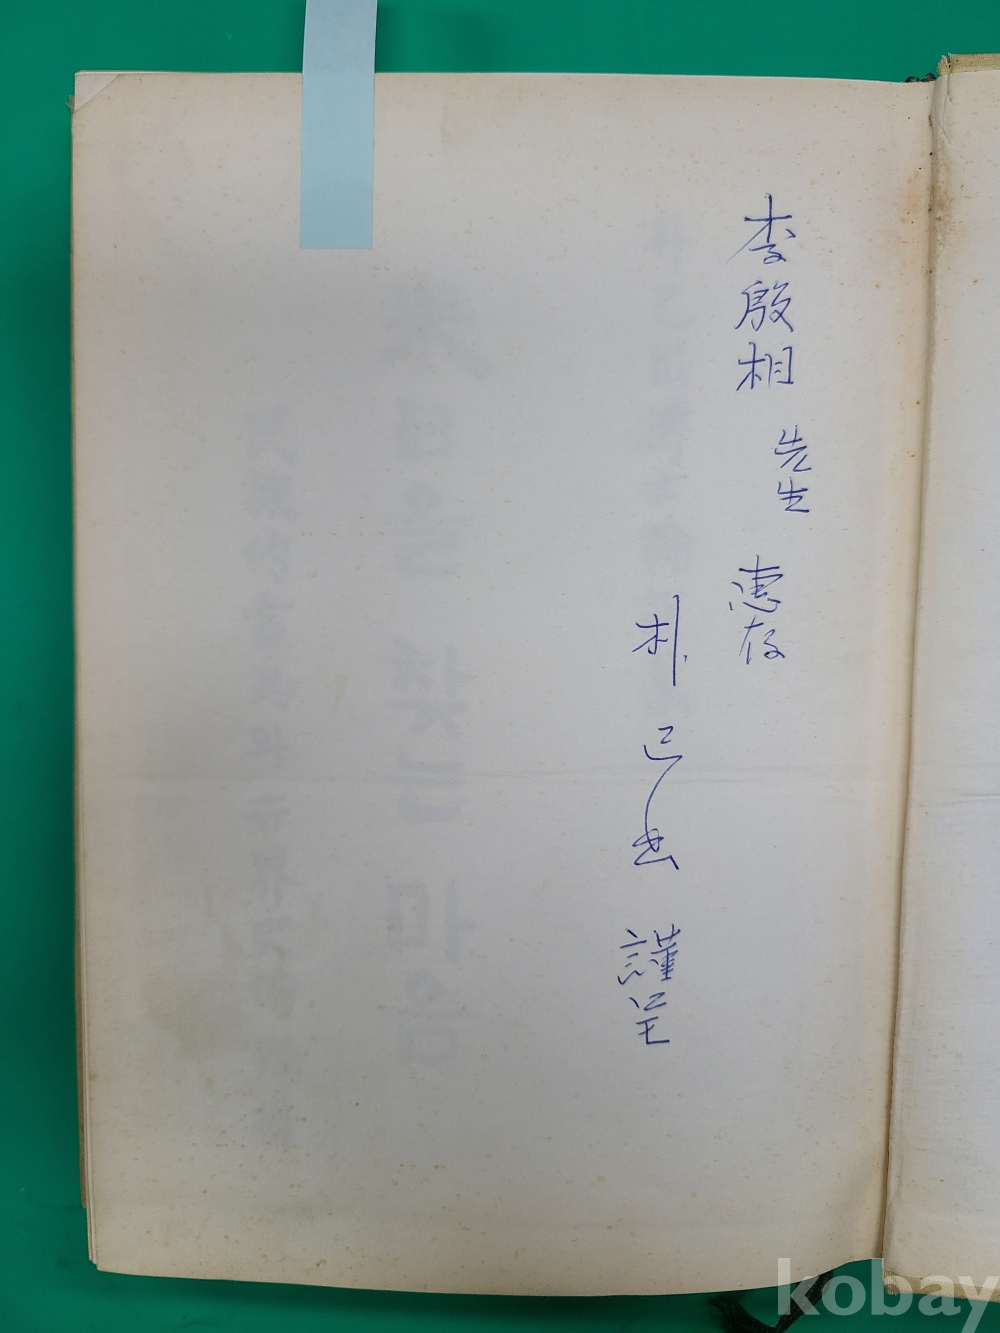 李殷相 先生 惠存
朴己出 謹呈
kobay